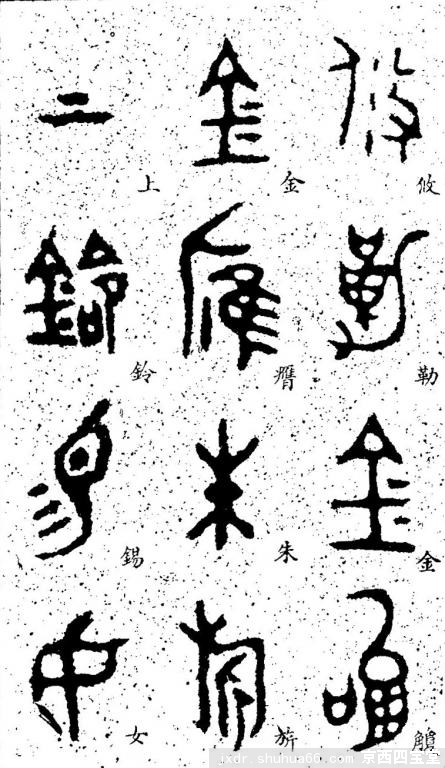 攸勒金
金膺朱旂
上鈴錫女
jxdr.shuhua66.com 京西四宝堂